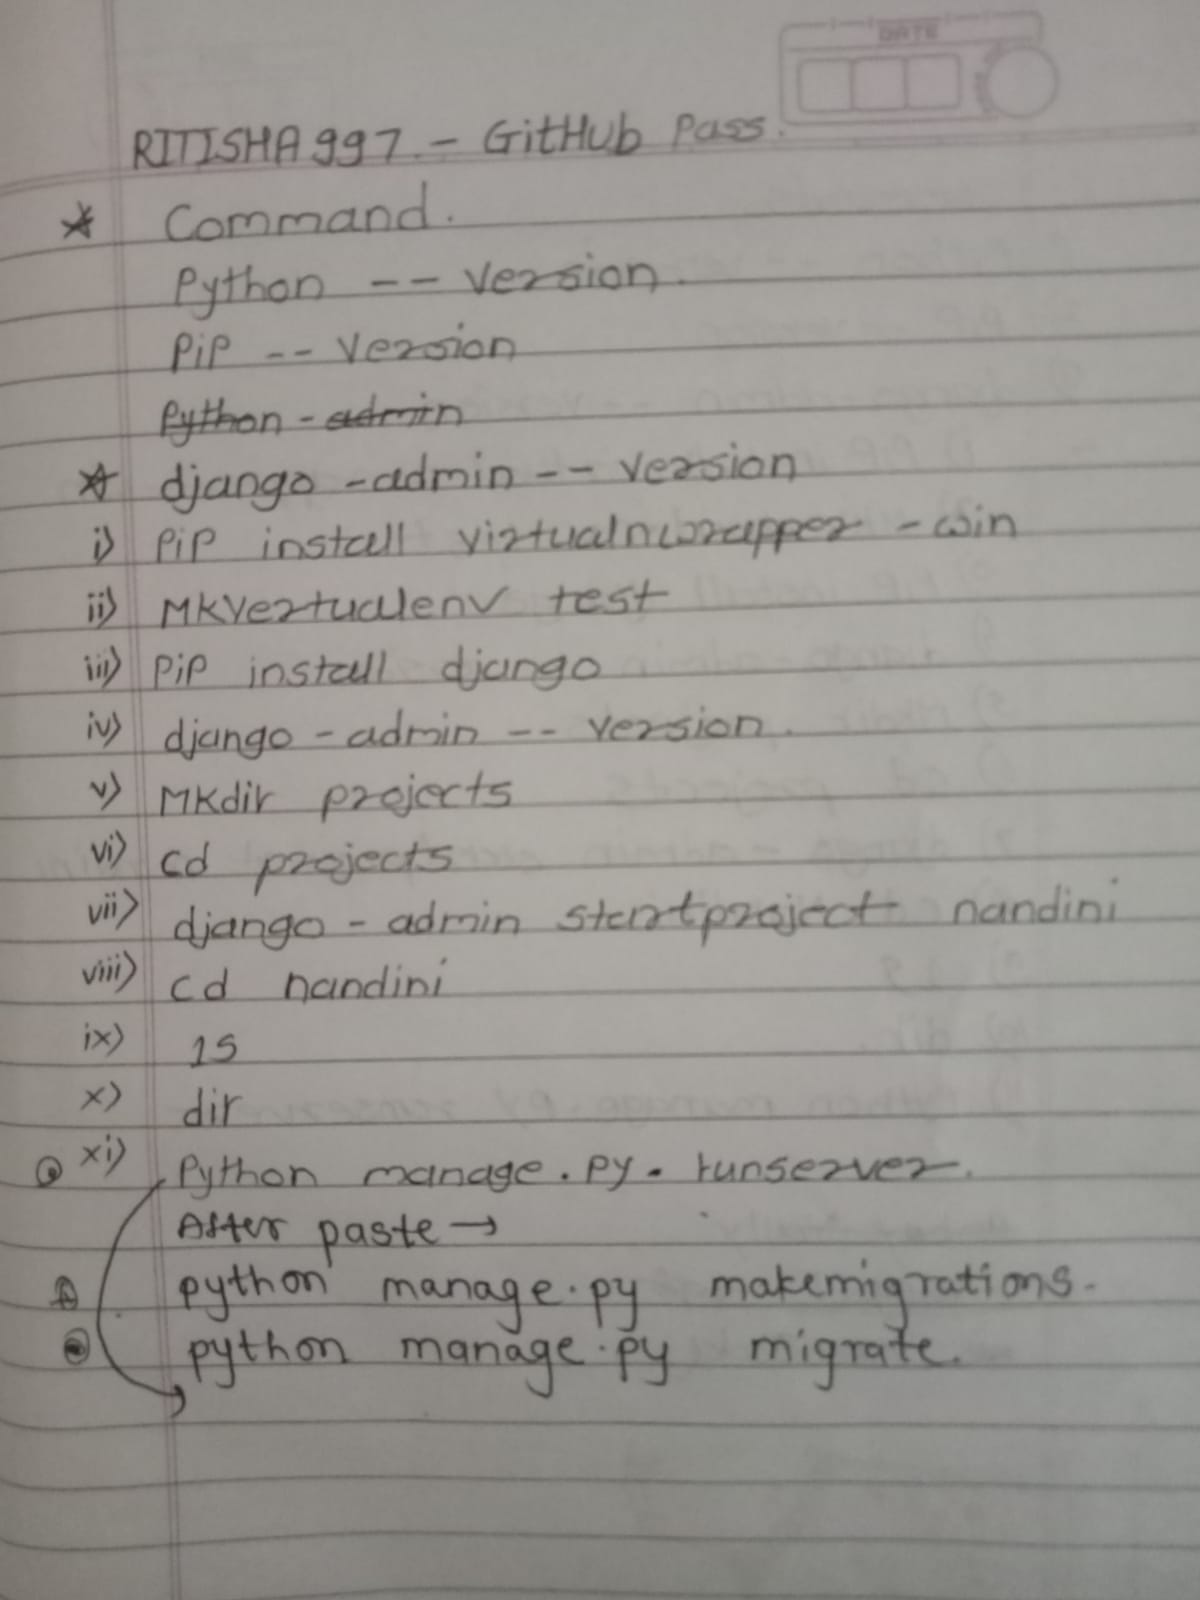 DATE
RITISHA997 - GitHub Pass.
* Command.
Python -- version.
PiP -- Version
Python - admin
* django - admin -- version
i) PiP install virtualnwrapper - win
ii) MKVertualenv test
iii) PiP install django
iv) django - admin -- version.
v) MKdir projects
vi) cd projects
vii) django - admin startproject nandini
viii) cd nandini
ix) 1s
x) dir
xi) Python manage.py. runserver.
After paste →
python manage.py makemigrations.
python manage.py migrate.